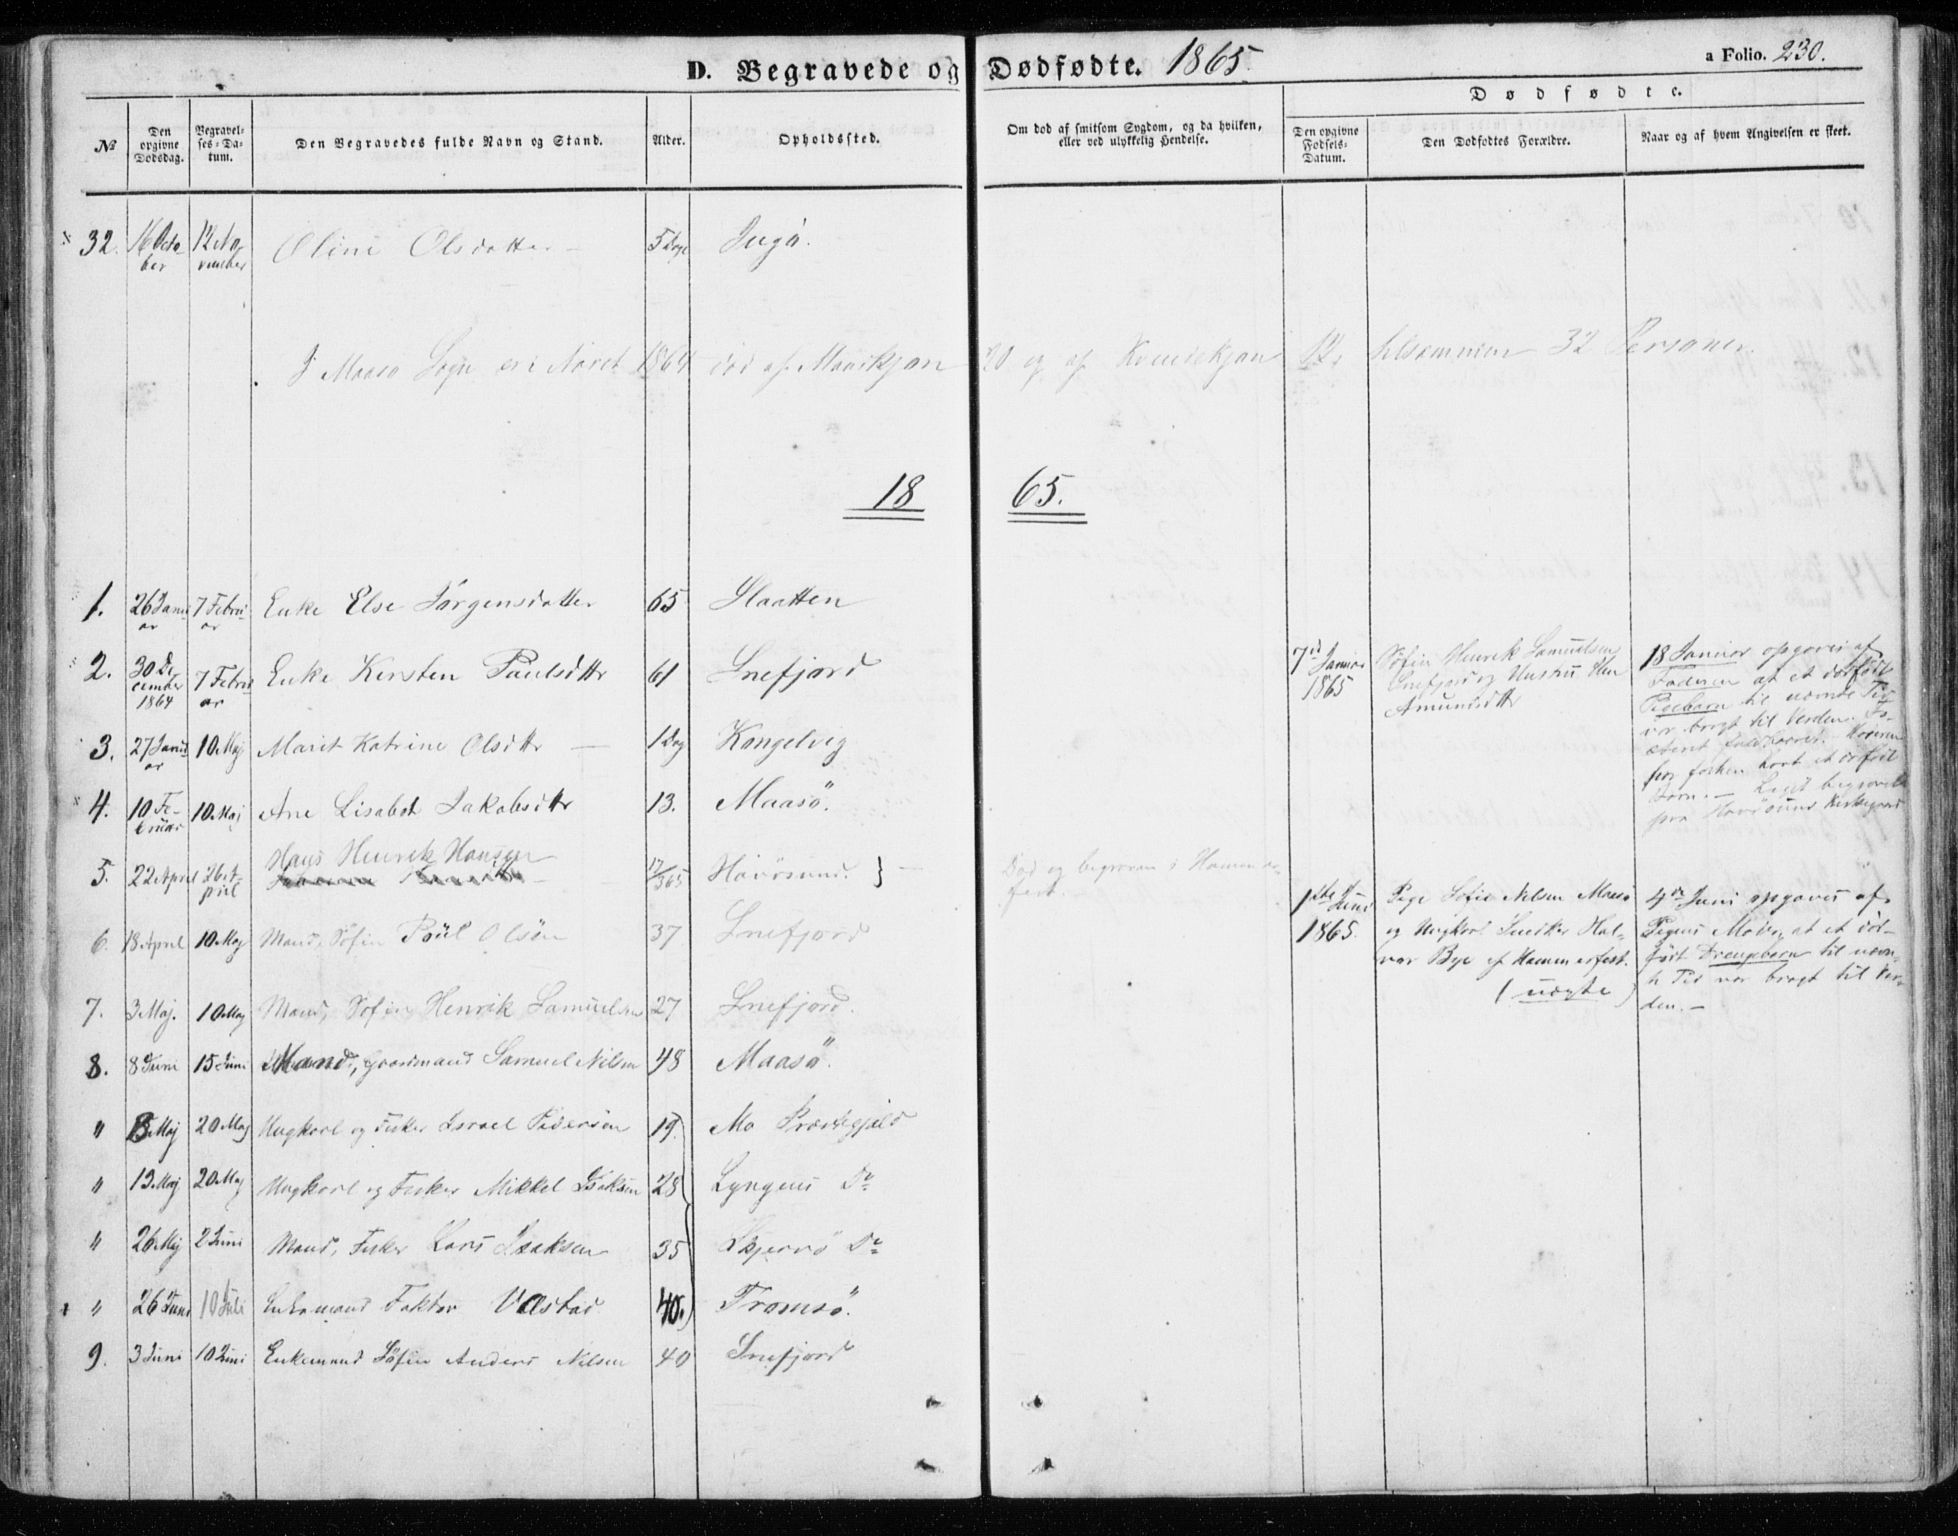 D. Begravede og Dødfødte. 1865.
a Folio. 230.
Dødfødte.
№
Den opgivne Dødsdag.
Begravelses-Datum.
Den Begravedes fulde Navn og Stand.
Alder.
Opholdssted.
Om død af smitsom Sygdom, og da hvilken, eller ved ulykkelig Hendelse.
Den opgivne Fødsels-Datum.
Den Dødfødtes Forældre.
Naar og af hvem Angivelsen er skeet.
32. 16 October 12 November Oline Olsdatter 5 Dage Ingø.
I Maasø Sogn ere Aaret 1864 død af Mandkjøn 20 og af Kvindekjøn 12, tilsammen 32 Personer.
18 65.
1. 26 Januar 7 Februar Enke Else Jørgensdatter 65 Slaatten
2. 30 December 1864 7 Februar Enke Kirsten Paulsdttr 61 Snefjord
3. 27 Januar 10 Maj Marit Katrine Olsdttr — 1 Dag Kangelvig
4. 10 Februar 10 Maj Ane Lisabet Jakobsdttr 13. Maasö.
5. 22 April 26 April Hans Henrik Hansen 17/365 Havösund. } —
Död og begraven i Hammerfest. —
6. 18 April 10 Maj Mand, Søfin Poül Olsön 37 Snefjord
7. 3 Maj. 10 Maj Mand, Sofin Henrik Samuelsen 27 Snefjord.
8. 8 Juni 15 Juni Mand, Gaardmand Samuel Nilsen 48 Maasö.
" 13 Maj 20 Maj Ungkarl og Fisker Israel Pedersen 19. Mo Præstegjeld
" 13 Maj 20 Maj Ungkarl og Fisker Mikkel Isaksen 28 Lyngens Do
" 26 Maj 2 Juni Mand, Fisker Lars Isaksen 35 Skjervö Do
" 26 Juni 10 Juli Enkemand Faktor Vastad 40. Tromsö.
9. 3 Juni 10 Juni Enkemand Söfin Anders Nilsen 40 Snefjord
7d Januar 1865
Søfin Henrik Samuelsen
Snefjord og Hustru Elen
Amundsdttr
18 Januar opgaves af
Faderen at et dødfødt
Pigebarn til nævnte Tid
var bragt til Verden.
har forhen havt et dødfødt
Barn. — Liget begravet
paa Havösund Kirkegaard
1ste Juni 1865.
Pige Sofie Nilsen Maasø
og Ungkarl Snedker Halvor
Bye af Hammerfest.
(uægte)
4de Juni opgaves af
Pigens Moder, at et dødfødt
Drengebarn til nævnte
Tid var bragt til Verden. —